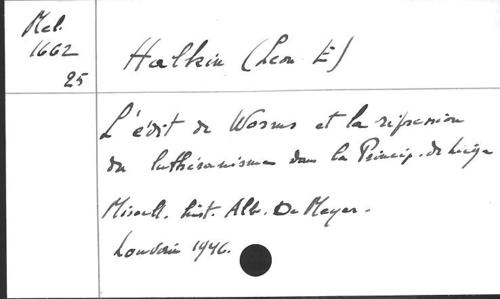 Mel.
1662
25
Halkin (Leon E)
L'édit de Worms et la répression
du luthéranisme dans la Princip. de Liège
Miscell. hist. Alb. De Meyer.
Louvain 1946.